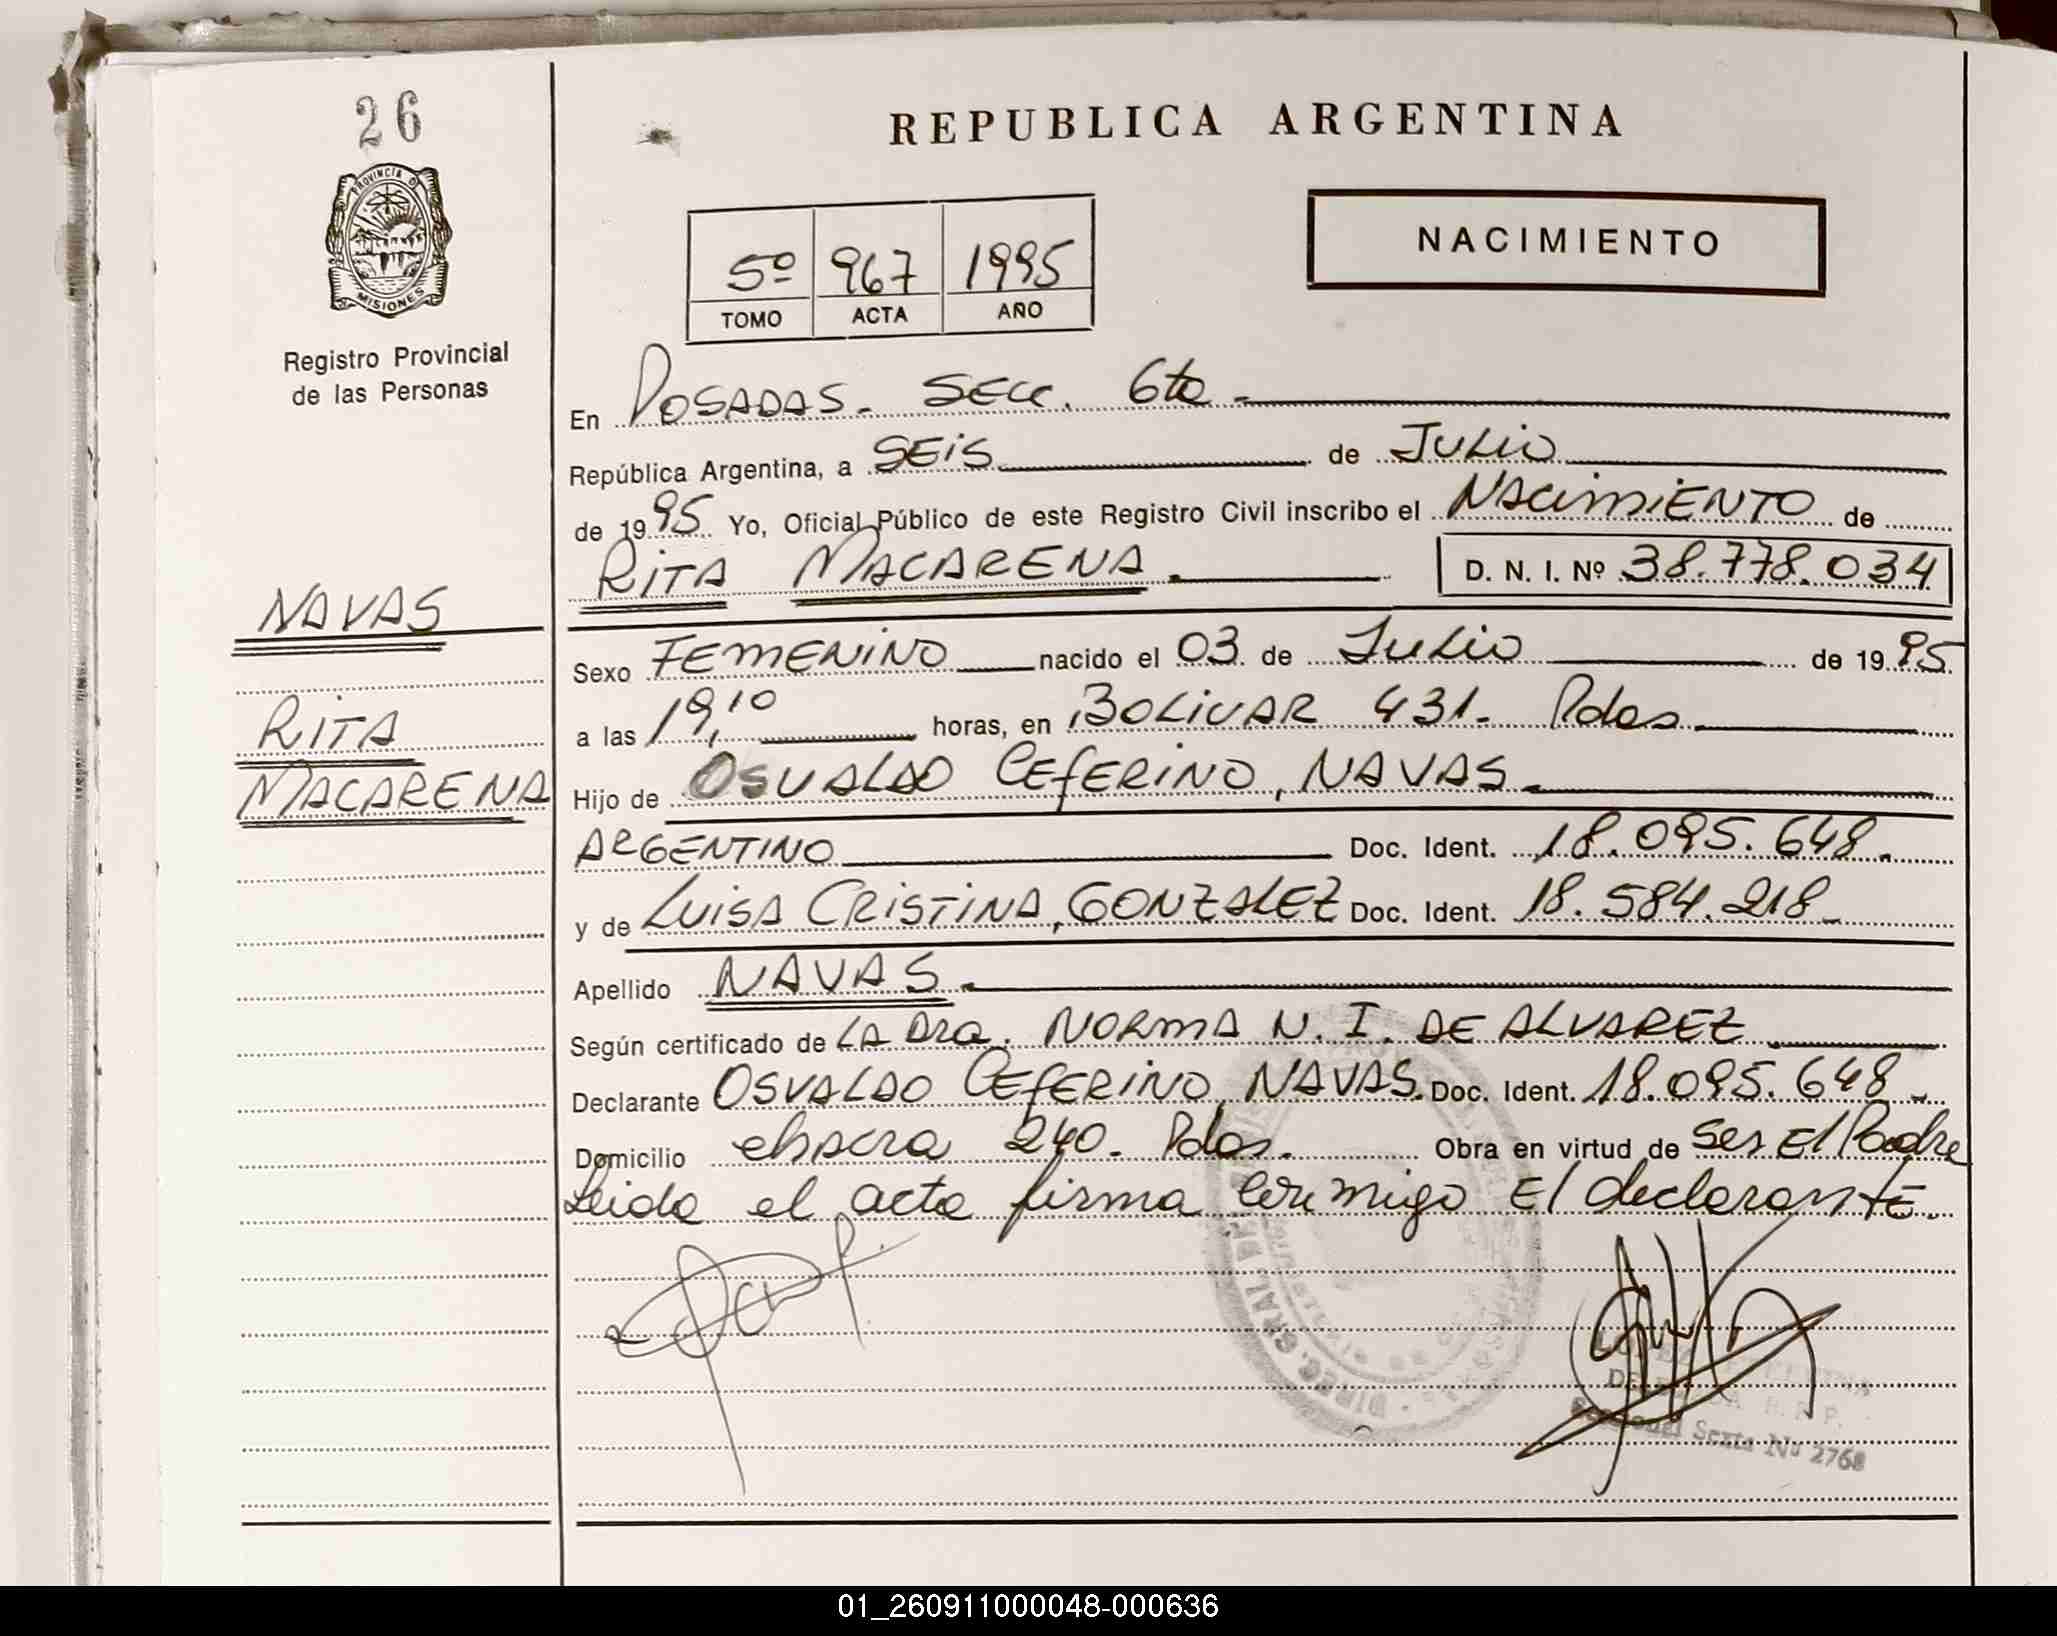 26
PROVINCIA D
MISIONES
Registro Provincial
de las Personas
NAVAS
RITA
MACARENA
REPUBLICA ARGENTINA
NACIMIENTO
5º 967 1995
TOMO ACTA AÑO
En POSADAS. SECC. 6ta.
República Argentina, a SEIS de JULIO
de 1995 Yo, Oficial Público de este Registro Civil inscribo el NACIMIENTO de
RITA MACARENA. D. N. I. Nº 38.778.034
Sexo FEMENINO nacido el 03 de Julio de 1995.
a las 19,10 horas, en BOLIVAR 431. Pdas.
Hijo de OSVALDO CEFERINO, NAVAS.
ARGENTINO Doc. Ident. 18.095.648.
y de LUISA CRISTINA, GONZALEZ Doc. Ident. 18.584.218
Apellido NAVAS.
Según certificado de LA Dra. NORMA N. I. DE ALVAREZ.
Declarante OSVALDO CEFERINO, NAVAS. Doc. Ident. 18.095.648.
Domicilio chacra 240. Pdas. Obra en virtud de Ser El Padre
Leida el acta firma conmigo El declarante.
DIREC. GRAL. DE
Seccional Sexta Nº 2768
01_260911000048-000636